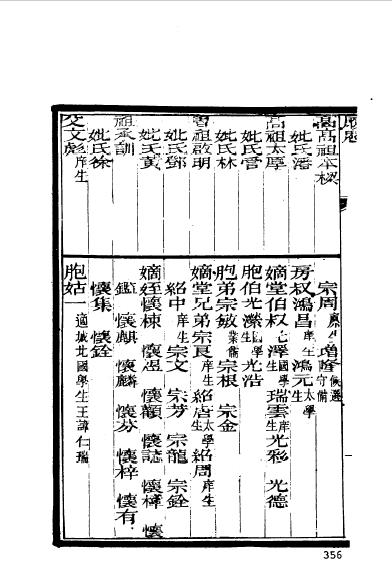 高高祖本樑
妣氏潘
高祖太厚
妣氏管
妣氏林
曾祖啟明
妣氏鄧
妣王黃
祖承訓
妣氏徐
父文彪庠生
宗周 增隆候選守備
房叔鴻昌庠生 鴻元太學生
嫡堂伯叔 澤國學生 瑞雲庠生 光彩 光德
胞伯光濼國學生 光浩
胞弟宗敏業儒 宗根 宗金
嫡堂兄弟宗良庠生 紹唐太學生 紹周庠生
紹中庠生 宗文 宗芳 宗龍 宗銓
嫡姪懷棟 懷焜 懷顯 懷誌 懷樟 懷
鑑 懷麒 懷麟 懷芬 懷梓 懷有
懷集 懷銓
胞姑一適城北國學生王諱仁瑞
356